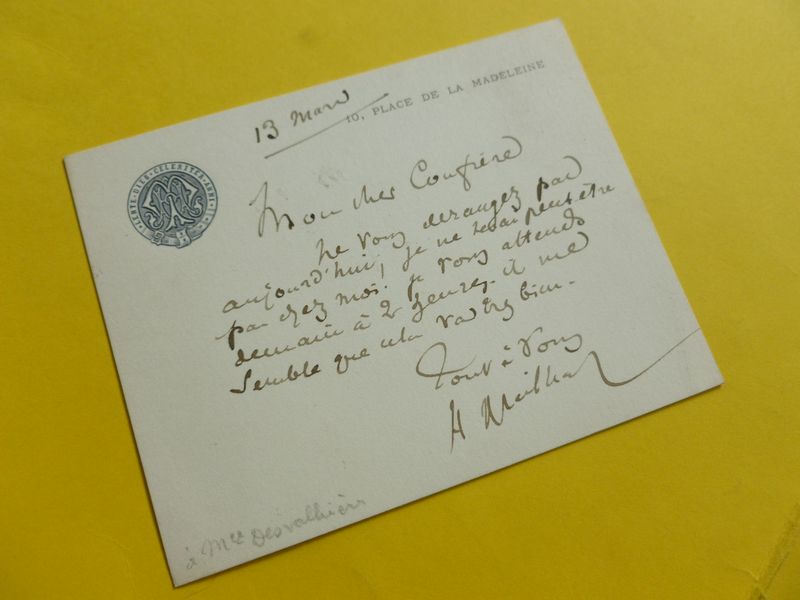 13 Mars
10, PLACE DE LA MADELEINE
Mon cher Confrère
Ne vous dérangez pas
aujourd'hui, je ne serai peut être
pas chez moi. je vous attends
demain à 2 heures. il me
semble que cela va très bien.
Tout à vous
H Meilhac
à Mr Desvallières